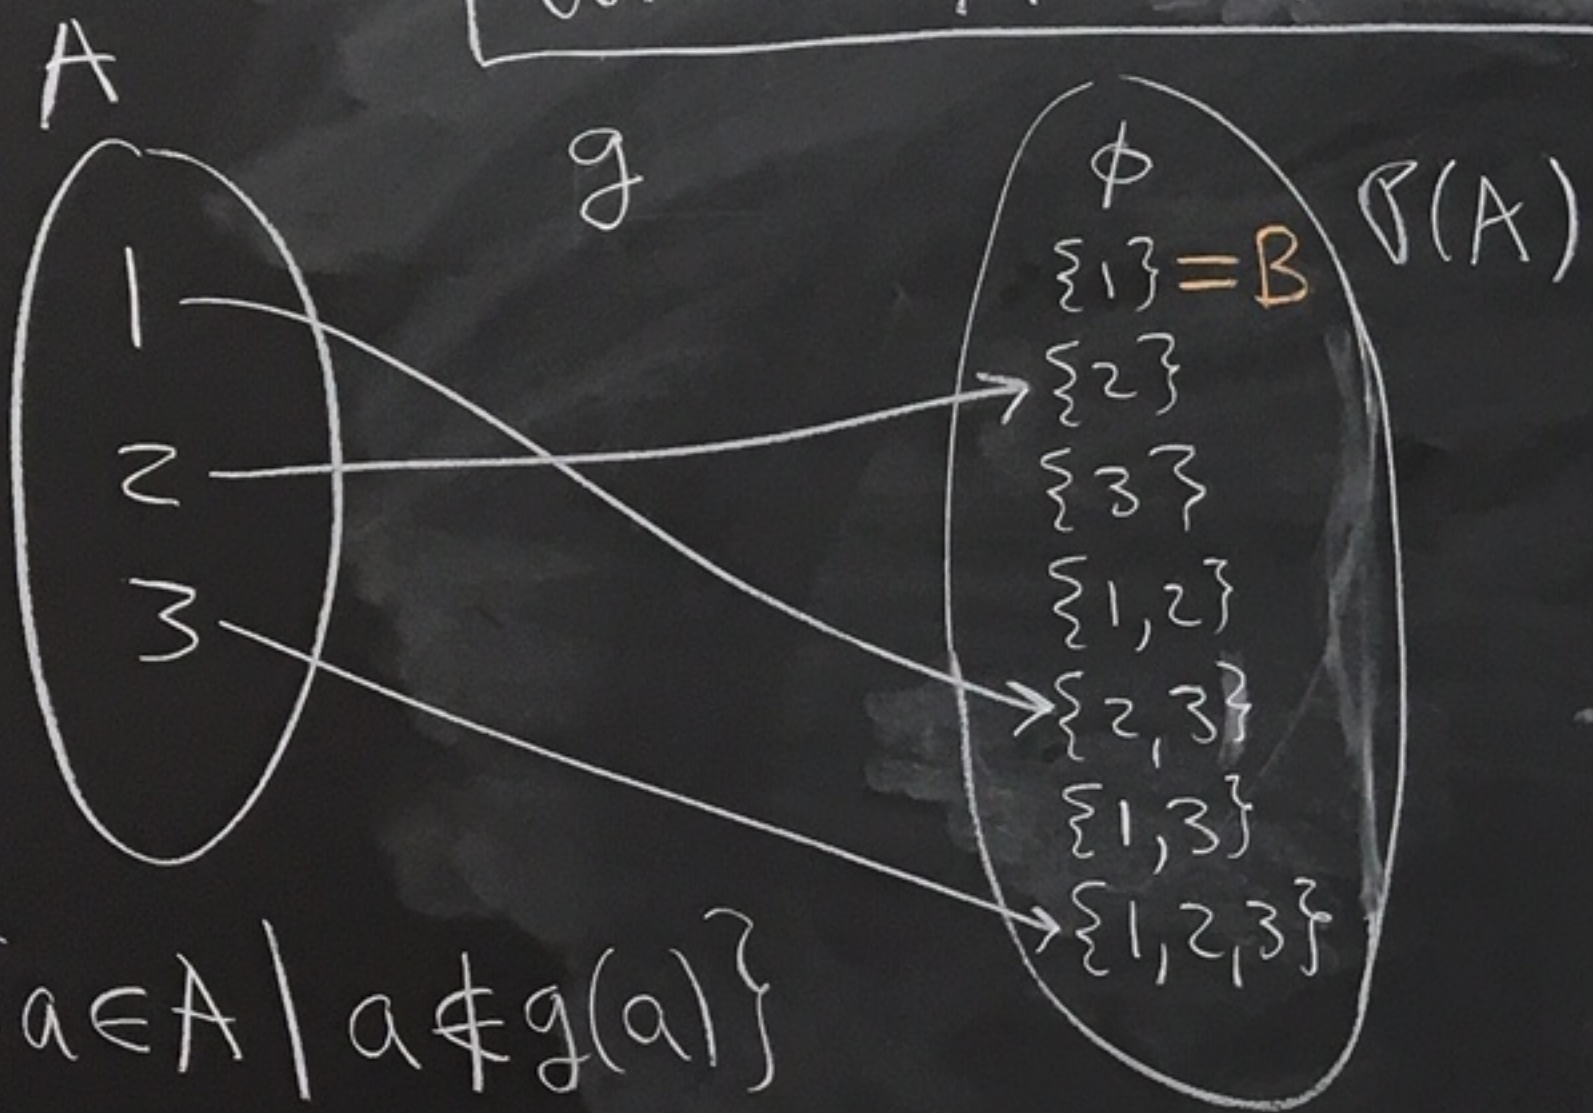 A
g
P(A)
1
2
3
ϕ
{1} = B
{2}
{3}
{1,2}
{2,3}
{1,3}
{1,2,3}
a∈A | a∉g(a)}